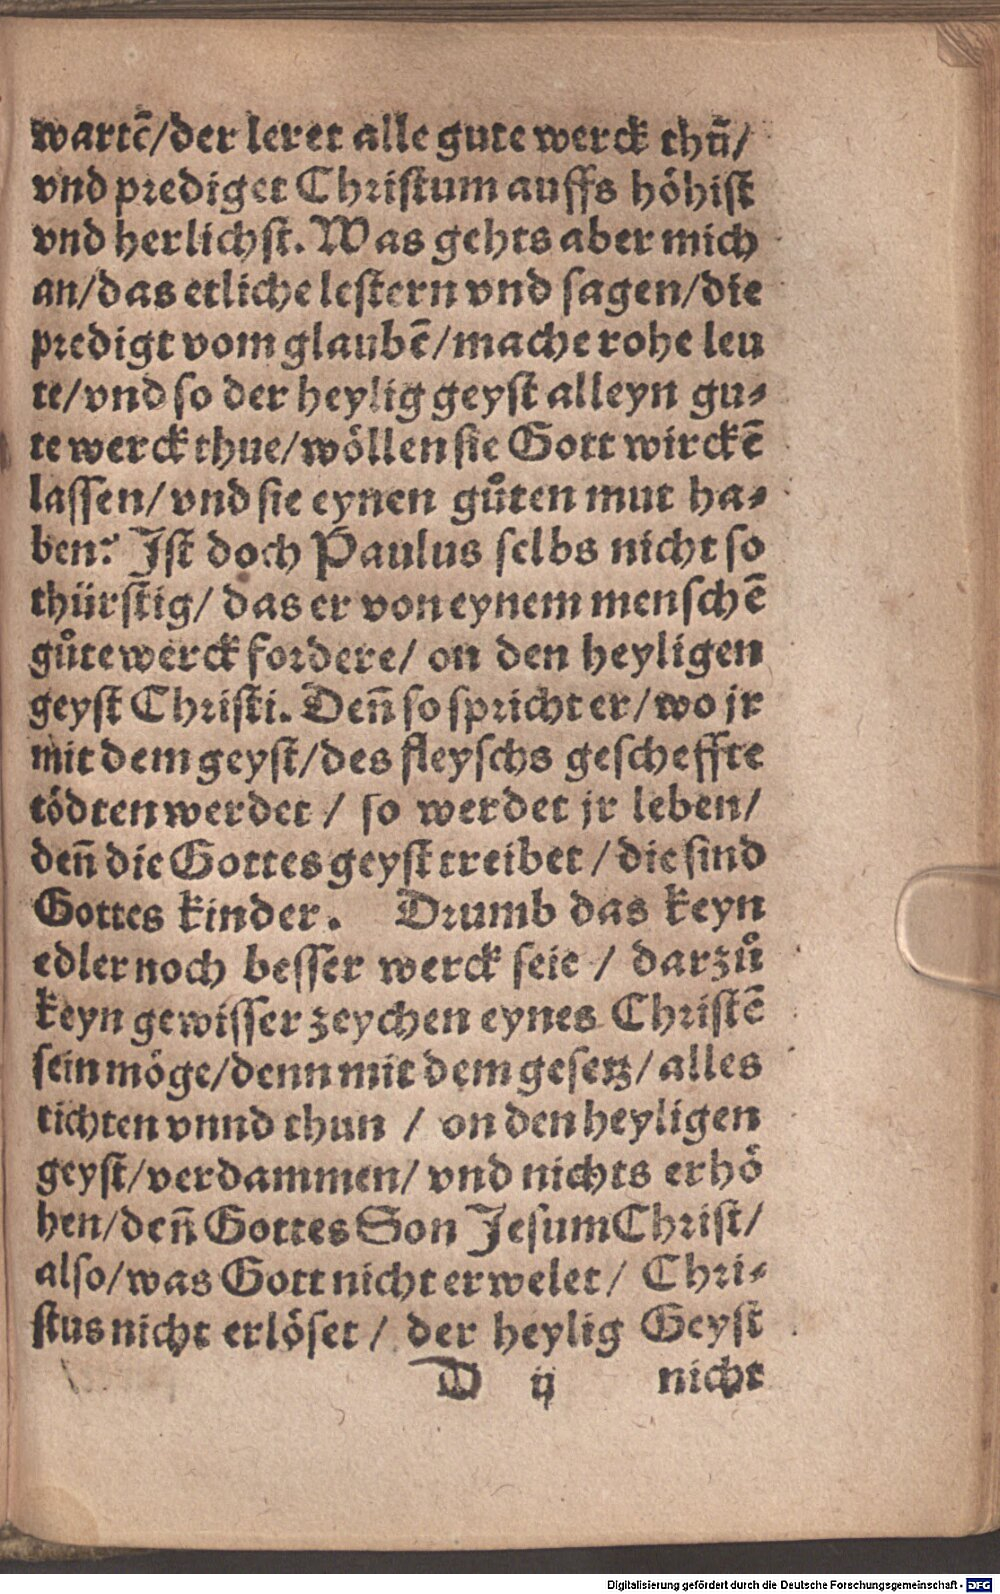 wartē/der leret alle gute werck thū/
vnd prediget Christum auffs höhist
vnd herlichst. Was gehts aber mich
an/das etliche lestern vnd sagen/die
predigt vom glaubē/mache rohe leu
te/vnd so der heylig geyst alleyn gu-
te werck thue/wöllen sie Gott wirckē
lassen/vnd sie eynen gůten mut ha-
ben? Ist doch Paulus selbs nicht so
thürstig/ das er von eynem menschē
gůte werck fordere/ on den heyligen
geyst Christi. Deñ so spricht er/wo jr
mit dem geyst/des fleyschs gescheffte
tödten werdet / so werdet jr leben/
deñ die Gottes geyst treibet / die sind
Gottes kinder. Drumb das keyn
edler noch besser werck seie / darzů
keyn gewisser zeychen eynes Christē
sein möge/denn mit dem gesetz/alles
tichten vnnd thun / on den heyligen
geyst/verdammen/ vnd nichts erhö
hen/deñ Gottes Son Jesum Christ/
also/was Gott nicht erwelet/ Chri-
stus nicht erlöset / der heylig Geyst
D ij nicht
Digitalisierung gefördert durch die Deutsche Forschungsgemeinschaft - DFG